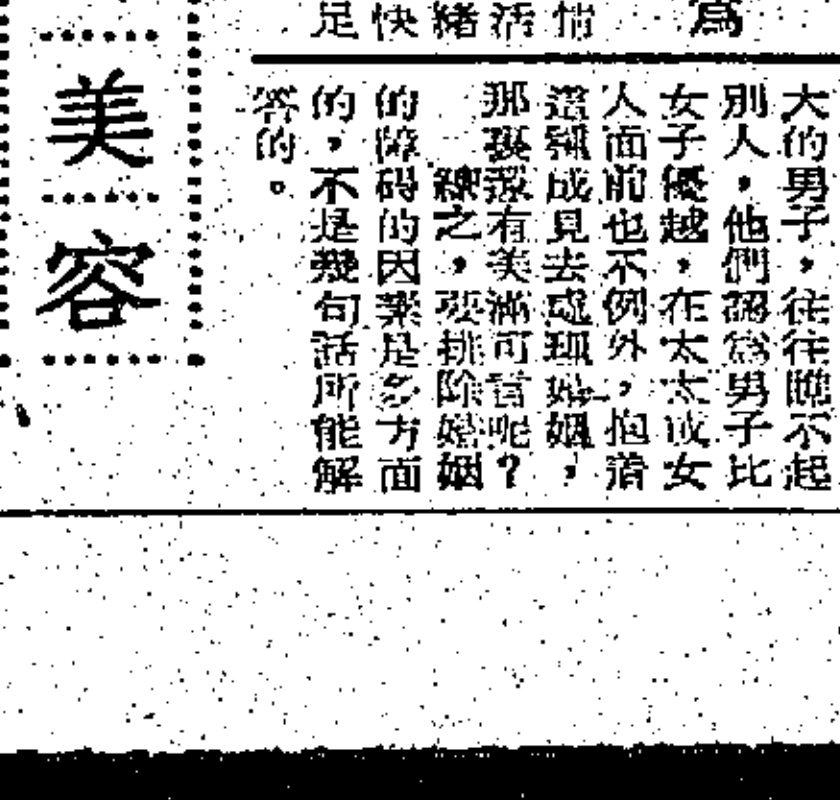 為
情
活
緒
快
足
大的男子，往往瞧不起
別人，他們認為男子比
女子優越，在太太或女
人面前也不例外，抱着
這種成見去處理婚姻，
那裏還有美滿可言呢？
總之，要排除婚姻
的障碍的因素是多方面
的，不是幾句話所能解
答的。
美容